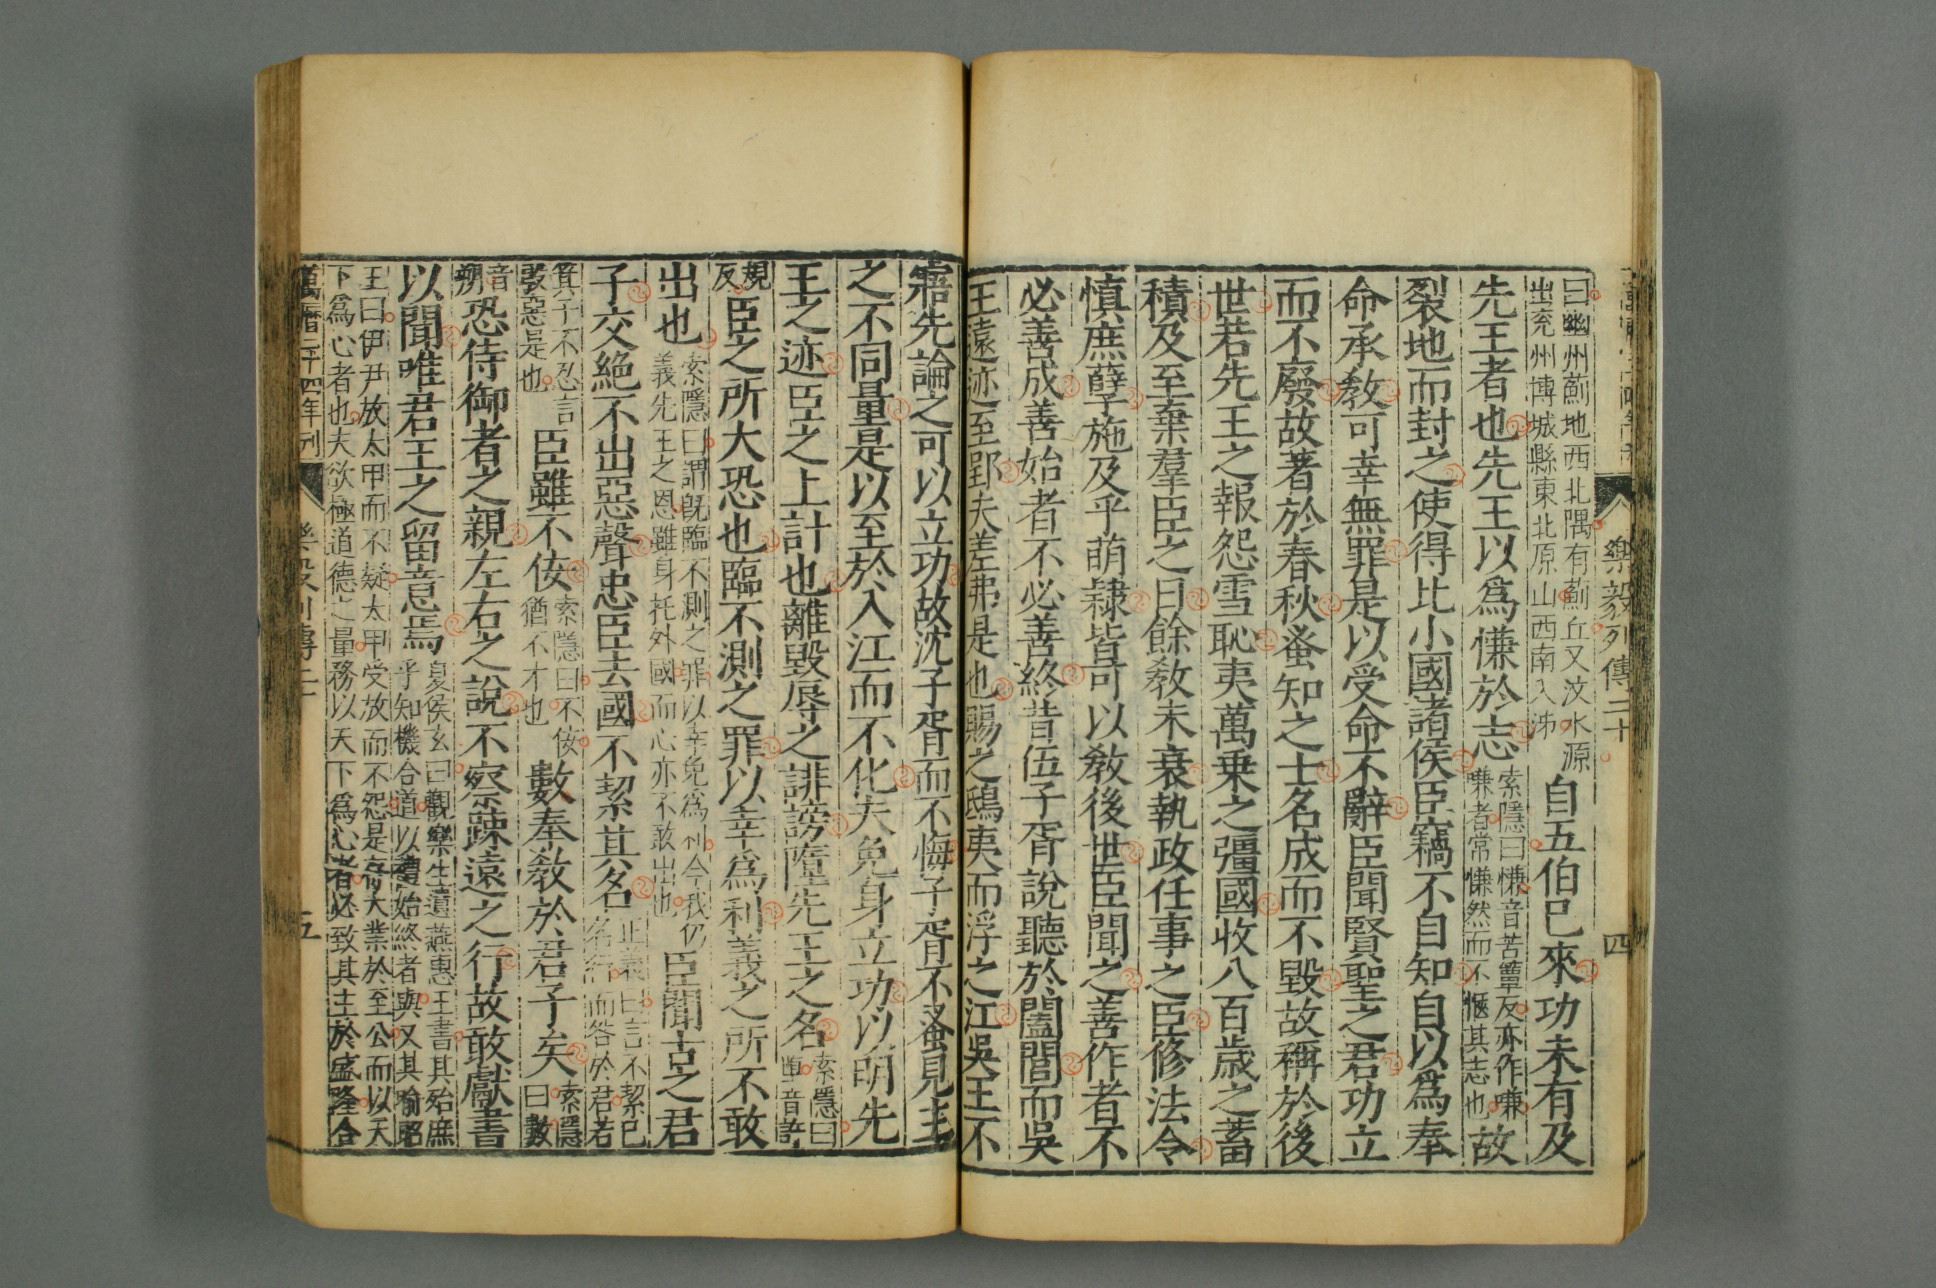 樂毅列傳二十
四
曰幽州薊地西北隅有薊丘又汶水源
出兖州博城縣東北原山西南入泲
自五伯已來功未有及
先王者也先王以爲慊於志
索隱曰慊音苦簟反亦作嗛
嗛者常慊然而不愜其志也
故
裂地而封之使得比小國諸侯臣竊不自知自以爲奉
命承教可幸無罪是以受命不辭臣聞賢聖之君功立
而不廢故著於春秋蚤知之士名成而不毀故稱於後
世若先王之報怨雪恥夷萬乗之彊國收八百歲之蓄
積及至棄羣臣之日餘敎未衰執政任事之臣修法令
慎庶孽施及乎萌隸皆可以敎後世臣聞之善作者不
必善成善始者不必善終昔伍子胥說聽於闔閭而吳
王遠迹至郢夫差弗是也賜之鴟夷而浮之江吳王不
寤先論之可以立功故沈子胥而不悔子胥不蚤見主
之不同量是以至於入江而不化夫免身立功以明先
王之迹臣之上計也離毀辱之誹謗墮先王之名
索隱曰
墮音許
規
反
臣之所大恐也臨不測之罪以幸爲利義之所不敢
出也
索隱曰謂旣臨不測之罪以幸免爲利今我仍
義先王之恩雖身托外國而心亦不敢出也
臣聞古之君
子交絶不出惡聲忠臣去國不絜其名
正義曰言不絜己
名行而咎於君若
箕子不忍言
殷惡是也
臣雖不佞
索隱曰不佞
猶不才也
數奉敎於君子矣
索隱
曰數
音
朔
恐侍御者之親左右之說不察疎遠之行故敢獻書
以聞唯君王之留意焉
夏侯玄曰觀樂生遺燕惠王書其殆庶
乎知機合道以禮始終者與又其喻昭
王曰伊尹放太甲而不疑太甲受放而不怨是存大業於至公而以天
下爲心者也夫欲極道德之量務以天下爲心者必致其主於盛隆合
萬曆二十四年刊
樂毅列傳二十
五